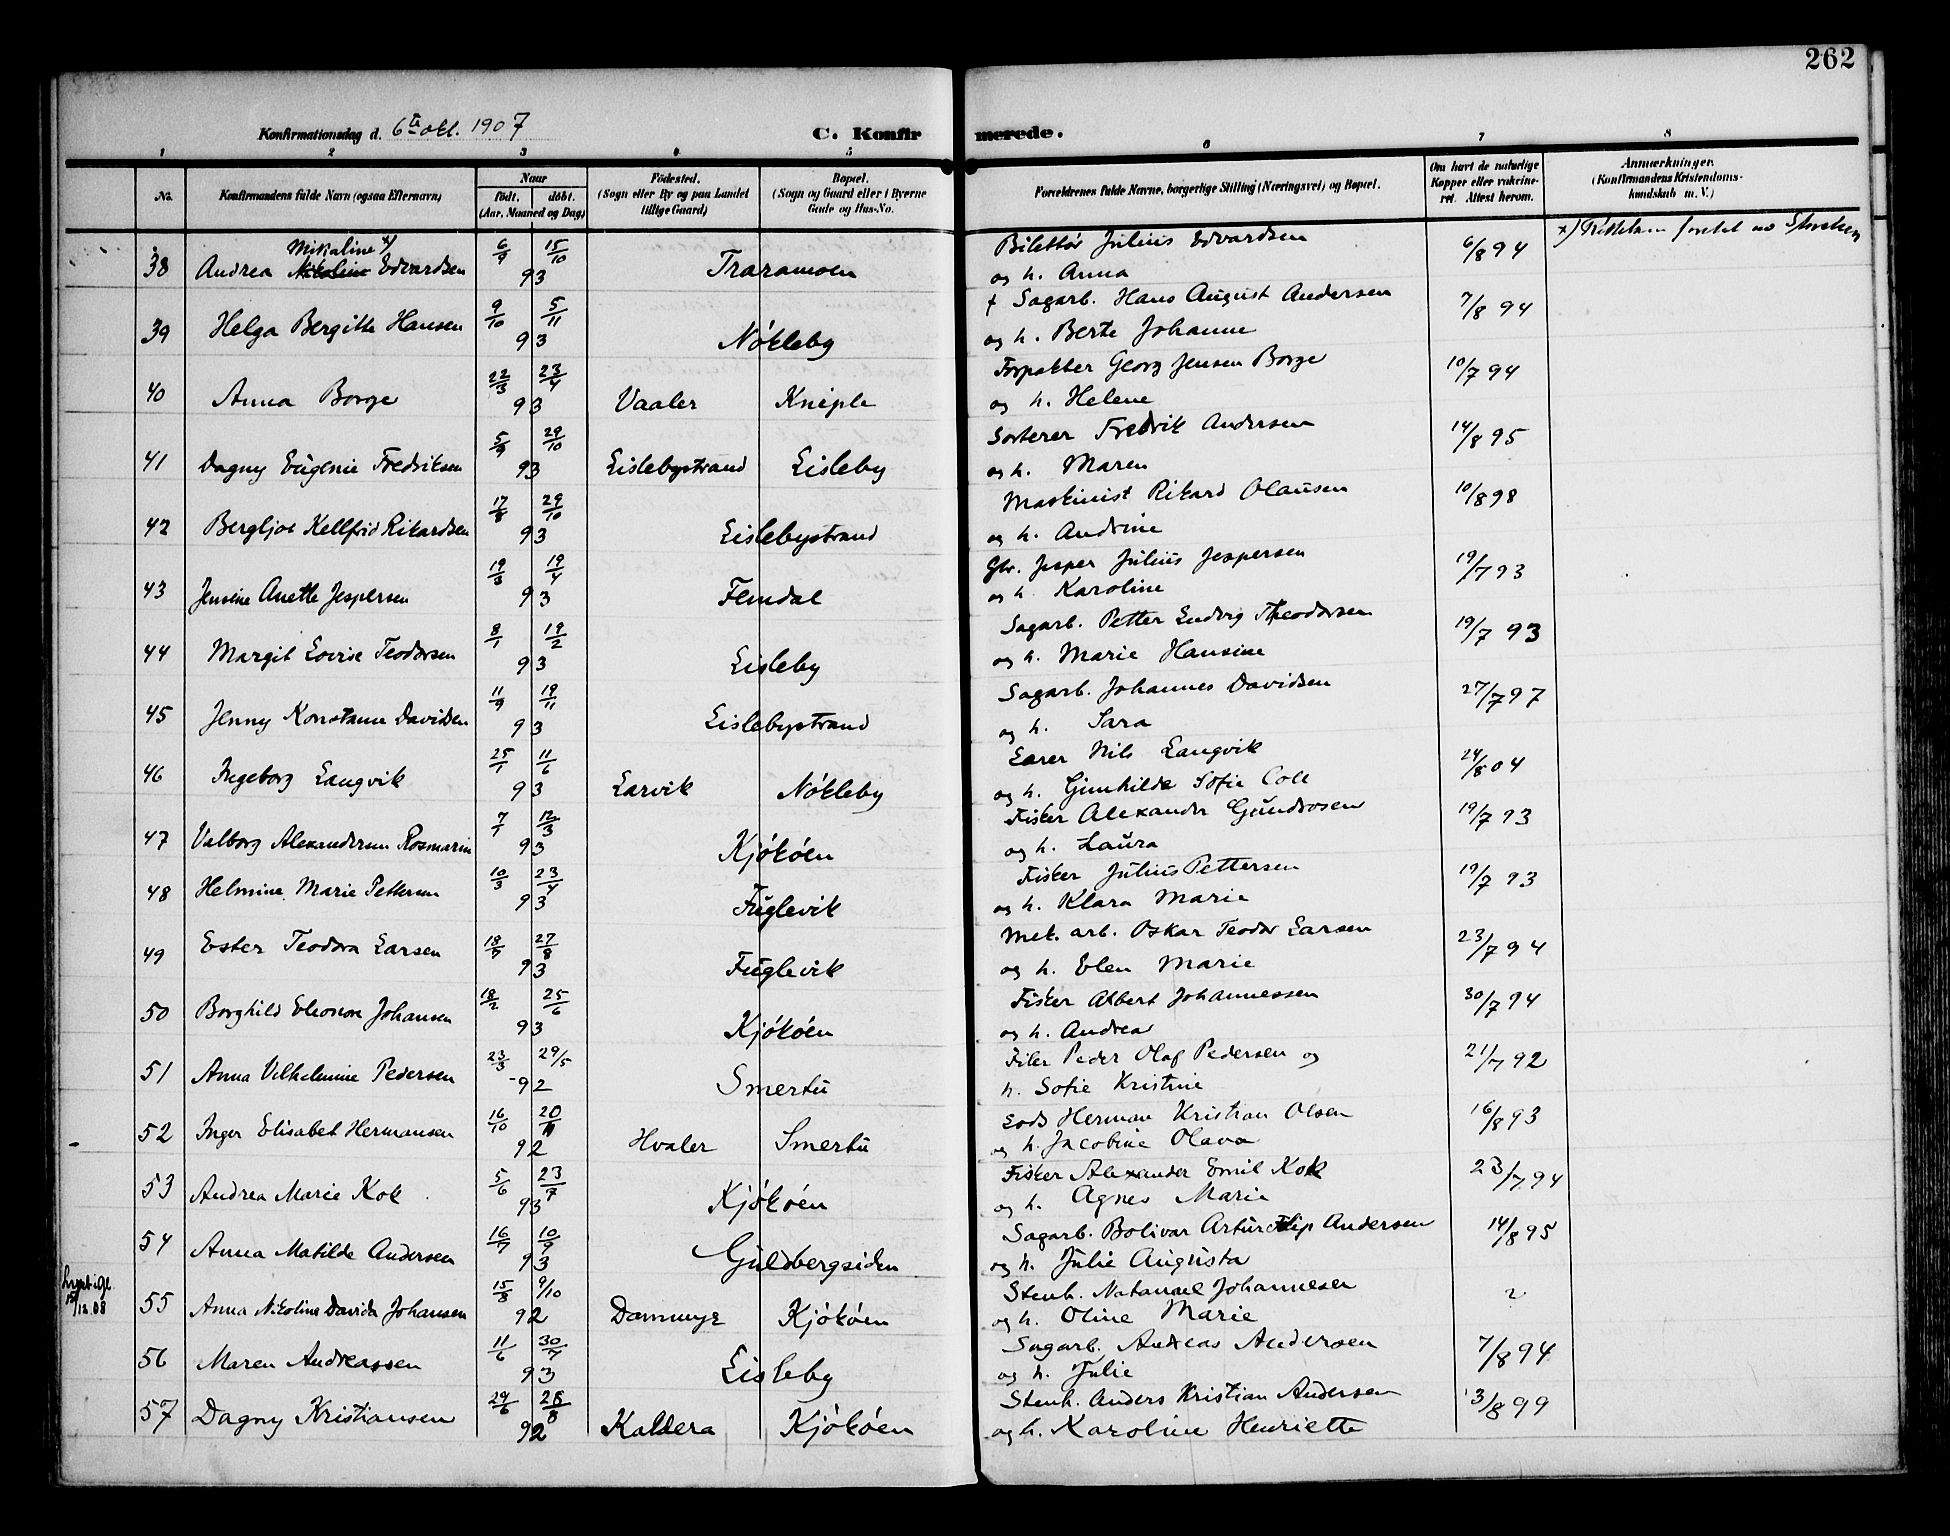 262
Konfirmationsdag d. 6te okt. 1907 C. Konfirmerede.
1 2 3 4 5 6 7 8
No. Konfirmandens fulde Navn (ogsaa Efternavn) Naar født. døbt. (Aar, Maaned og Dag) Fødested. (Sogn eller By og paa Landet tillige Gaard) Bopæl. (Sogn og Gaard eller i Byerne Gade og Hus-No. Forældrenes fulde Navne, borgerlige Stilling (Næringsvei) og Bopæl. Om havt de naturlige Kopper eller vakcineret. Attest herom. Anmærkninger. (Konfirmandens Kristendomskundskab m. V.)
38 Andrea Mikaline x) Nikoline Edvardsen 6/9 15/10 93 Traramoen Billettør Julius Edvardsen 6/8 94 x) Rettelsen foretat av
og h. Anna
39 Helga Bergitte Hansen 9/10 5/11 93 Nökleby † Sagarb. Hans August Andersen 7/8 94
og h. Berte Johanne
40 Anna Borge 22/3 23/4 93 Vaaler Kniple Forpakter Georg Jensen Borge 10/7 94
og h. Helene
41 Dagny Eugenie Fredriksen 5/9 29/10 93 Lislebystrand Lisleby Sorterer Fredrik Andersen 14/8 95
og h. Maren
42 Bergljot Kellfrid Rikardsen 17/8 29/10 93 Lislebystrand Maskinist Rikard Olausen 10/8 98
og h. Andrine
43 Jensine Anette Jespersen 19/3 19/4 93 Femdal Gbr. Jesper Julius Jespersen 19/7 93
og h. Karoline
44 Margit Lovise Teodorsen 8/1 19/2 93 Lisleby Sagarb. Petter Ludvig Theodorsen 19/7 93
og h. Marie Hansine
45 Jenny Konstanse Davidsen 11/9 19/11 93 Lislebystrand Sagarb. Johannes Davidsen 27/7 97
og h. Sara
46 Ingeborg Langvik 25/1 11/6 93 Larvik Nökleby Lærer Nils Langvik 24/8 04
og h. Gunhilde Sofie Coll
47 Valborg Alexandersen Rosmarin 7/1 12/3 93 Kjököen Fisker Alexander Gundrosen 19/7 93
og h. Laura
48 Helmine Marie Pettersen 10/3 23/4 93 Fuglevik Fisker Julius Pettersen 19/7 93
og h. Klara Marie
49 Ester Teodora Larsen 18/7 27/8 93 Fuglevik Mek. arb. Oskar Teodor Larsen 23/7 94
og h. Elen Marie
50 Borghild Eleonora Johansen 18/2 25/6 93 Kjököen Fisker Albert Johannessen 30/7 94
og h. Andrea
51 Anna Vilhelmine Pedersen 23/3 29/5 92 Smertu Filer Peder Olaf Pedersen og 21/7 92
h. Sofie Kristine
52 Inger Elisabet Hermansen 16/10 20/11 92 Hvaler Smertu Lods Herman Kristian Olsen 16/8 93
og h. Jacobine Olava
53 Andrea Marie Kok 5/6 23/7 93 Kjököen Fisker Alexander Emil Kok 23/7 94
og h. Agnes Marie
54 Anna Matilde Andersen 16/7 10/9 93 Guldbergsiden Sagarb. Bolivar Artur Filip Andersen 14/8 95
og h. Julie Augusta
55 Anna Nikoline Davida Johansen 15/8 9/10 92 Dammyr Kjököen Stenh. Natanael Johannesen
og h. Oline Marie
56 Maren Andreassen 11/6 30/7 93 Lisleby Sagarb. Andreas Andersen 7/8 94
og h. Julie
57 Dagny Kristiansen 29/6 28/8 92 Kaldera Kjököen Stenh. Anders Kristian Andersen 3/8 99
og h. Karoline Henriette